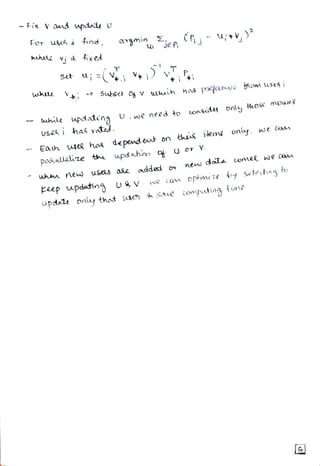 - Fix V and update U
For user i find, argmin_{u_i} Σ_{j∈P_i} (P_{ij} - u_i * v_j)²
where v_j is fixed
Set u_i = (V_{*i}^T V_{*i})^{-1} V_{*i}^T P_{*i}
where V_{*i} → Subset of V which has preference from user i
- while updating U, we need to consider only those movies
user i has rated.
- Each user has dependent on their items only. we can
parallelize the updation of U or V.
- when new users are added or new data comes, we can
keep updating U & V we can optimize by selecting to
update only that user & save computing time